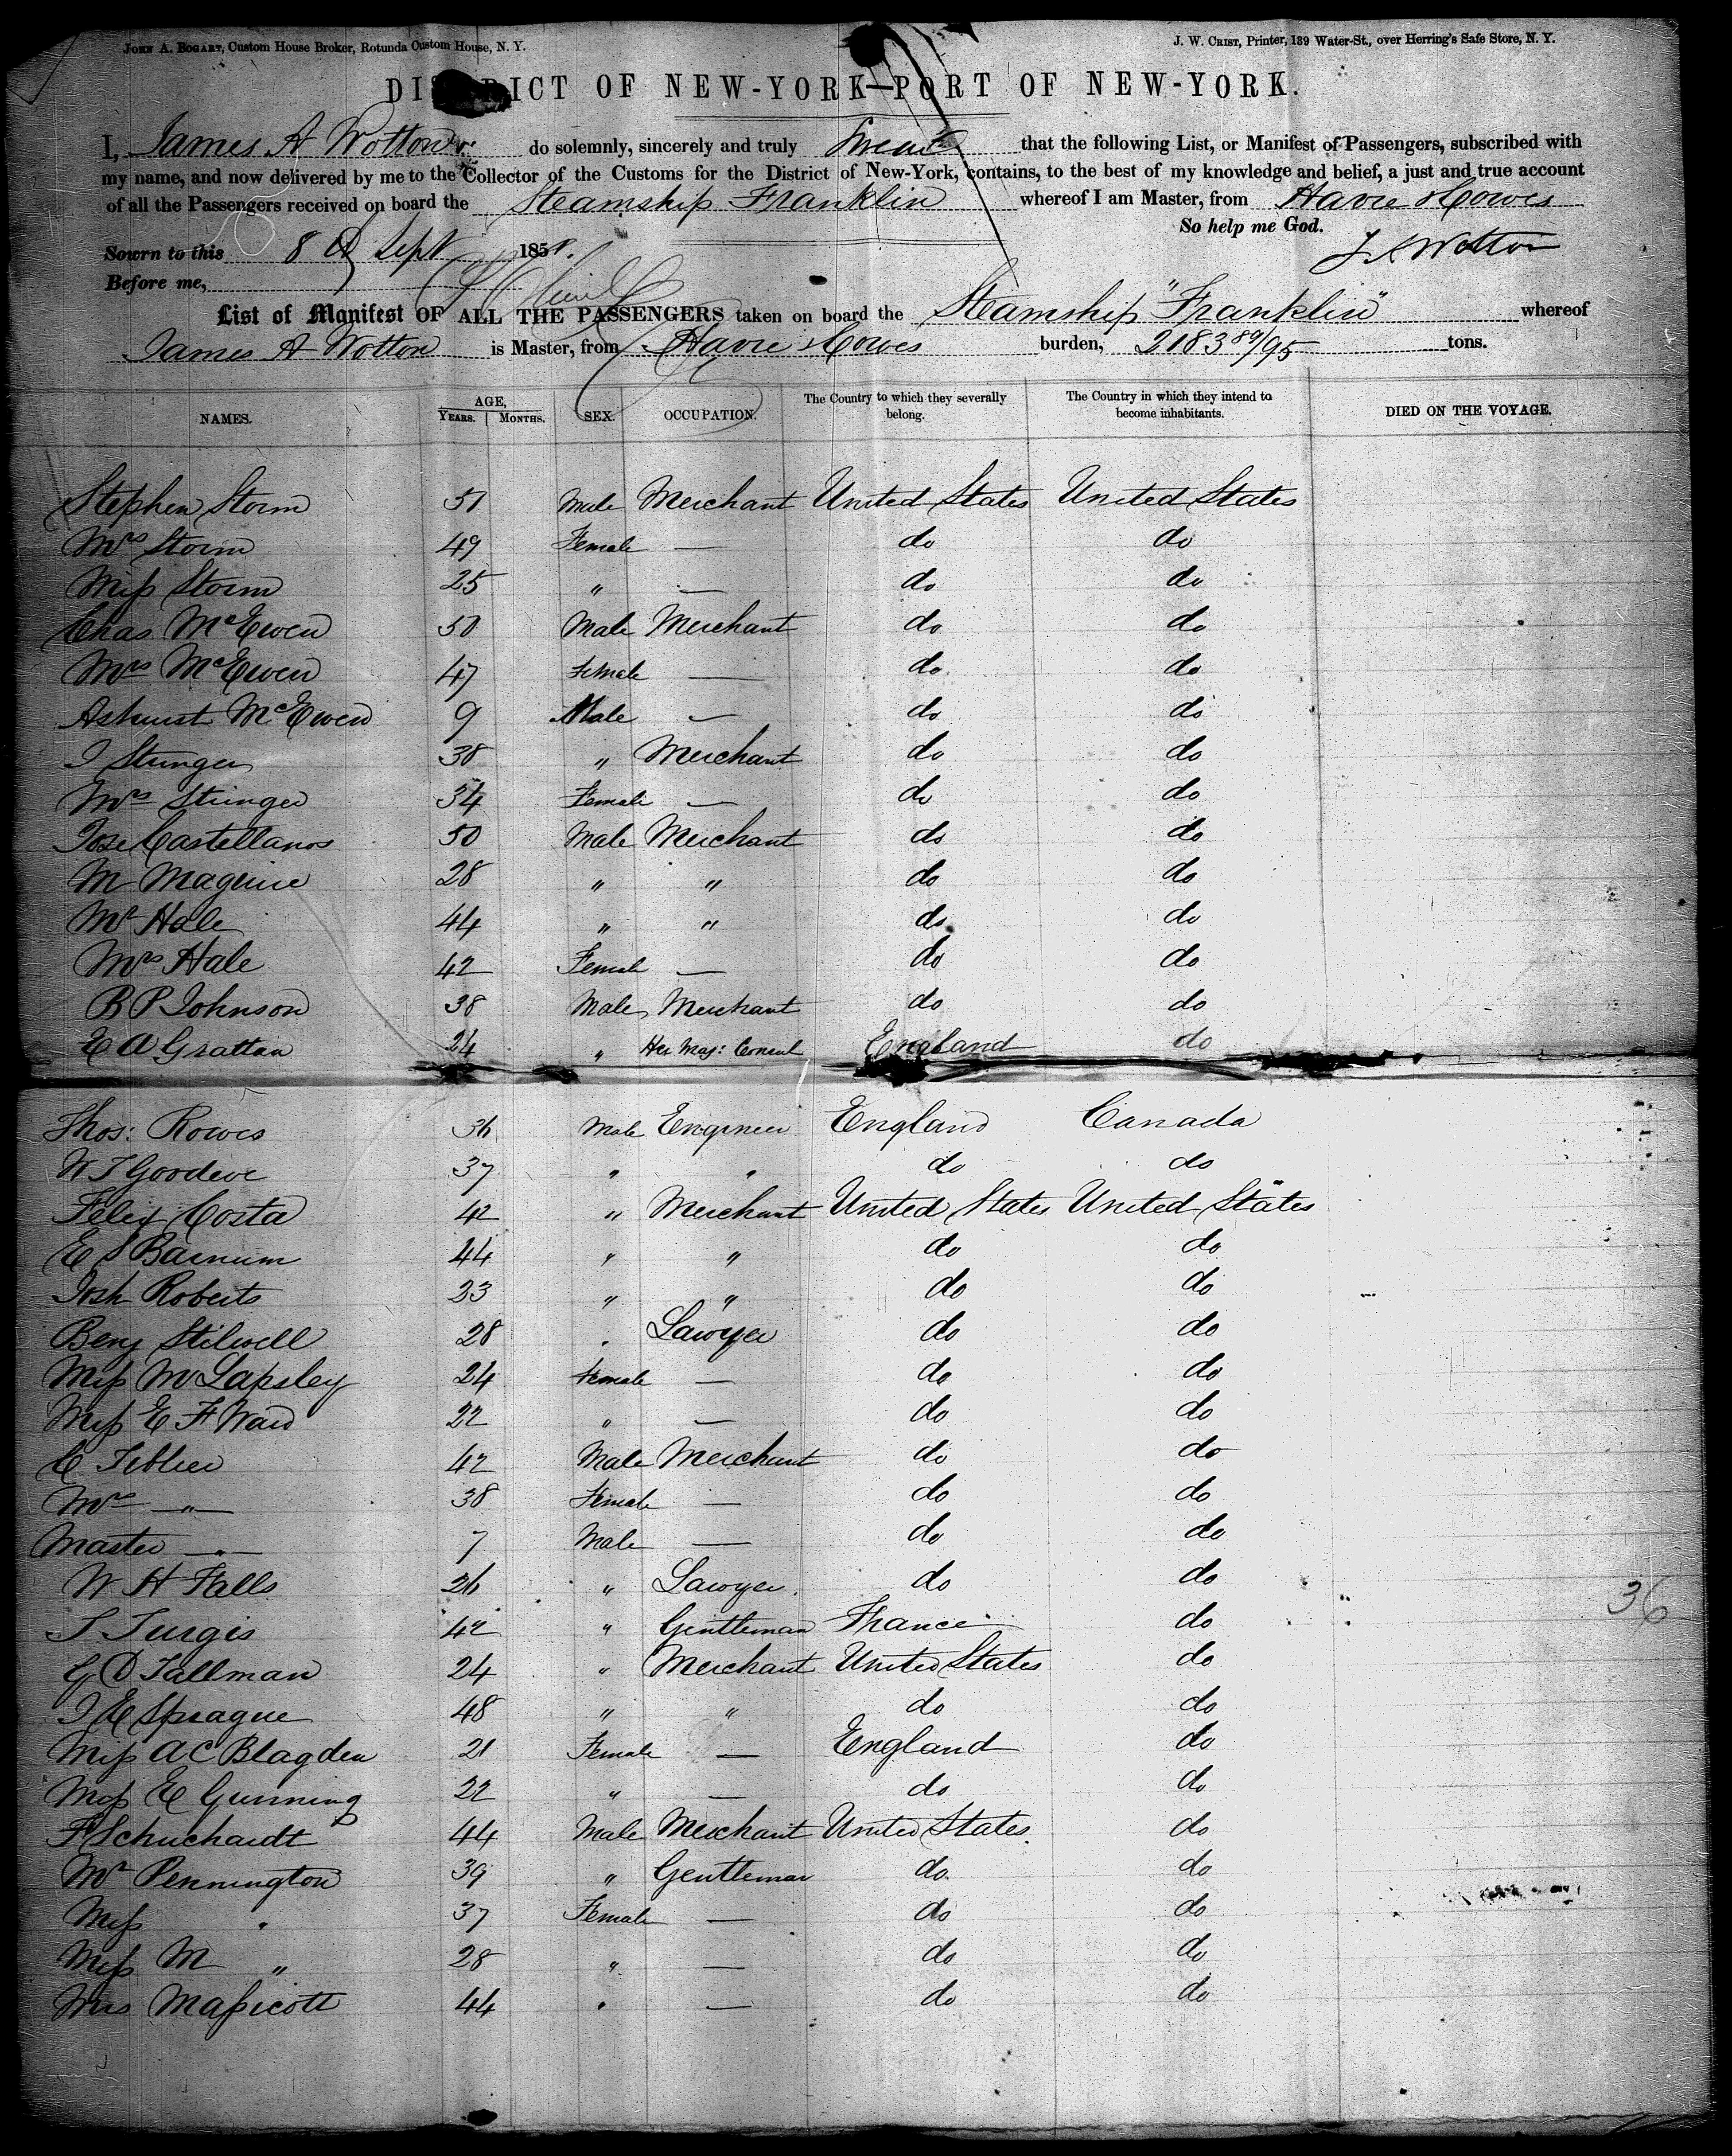 JOHN A. BOGART, Custom House Broker, Rotunda Custom House, N. Y.
J. W. CRIST, Printer, 139 Water-St., over Herring's Safe Store, N. Y.
DISTRICT OF NEW-YORK—PORT OF NEW-YORK.
I, James A Wotton do solemnly, sincerely and truly Swear that the following List, or Manifest of Passengers, subscribed with
my name, and now delivered by me to the Collector of the Customs for the District of New-York, contains, to the best of my knowledge and belief, a just and true account
of all the Passengers received on board the Steamship Franklin whereof I am Master, from Havre & Cowes
So help me God.
Sowrn to this 8 Sept 1851. J A Wotton
Before me,
List of Manifest OF ALL THE PASSENGERS taken on board the Steamship "Franklin" whereof
James A Wotton is Master, from Havre & Cowes burden, 2183 89/95 tons.
NAMES. AGE, YEARS. MONTHS. SEX. OCCUPATION. The Country to which they severally belong. The Country in which they intend to become inhabitants. DIED ON THE VOYAGE.
Stephen Storm 51 Male Merchant United States United States
Mrs Storm 49 Female — do do
Miss Storm 25 " — do do
Chas McEwen 50 Male Merchant do do
Mrs McEwen 47 Female — do do
Ashurst McEwen 9 Male — do do
J Stringer 38 " Merchant do do
Mrs Stringer 34 Female — do do
Jose Castellanos 50 Male Merchant do do
M Maguire 28 " " do do
Mr Hale 44 " " do do
Mrs Hale 42 Female — do do
B P Johnson 38 Male Merchant do do
E A Grattan 24 " Her Maj: Consul England do
Thos: Rowes 36 Male Engineer England Canada
W T Goodeve 37 " " do do
Felix Costa 42 " Merchant United States United States
E S Barnum 44 " " do do
Josh Roberts 23 " " do do
Benj Stilwell 28 " Lawyer do do
Miss M Lapsley 24 Female — do do
Miss E H Ward 22 " — do do
C 42 Male Merchant do do
Mrs —"— 38 Female — do do
Master —"— 7 Male — do do
W H Falls 26 " Lawyer. do do
S Turgis 42 " Gentleman France do
G D Tallman 24 " Merchant United States do
J E Sprague 48 " " do do
Miss A C Blagden 21 Female — England do
Miss E Gunning 22 " — do do
F Schuchardt 44 Male Merchant United States do
Mr Pennington 39 " Gentleman do do
Miss " 37 Female — do do
Miss M " 28 " — do do
Mrs Massicott 44 " — do do
36